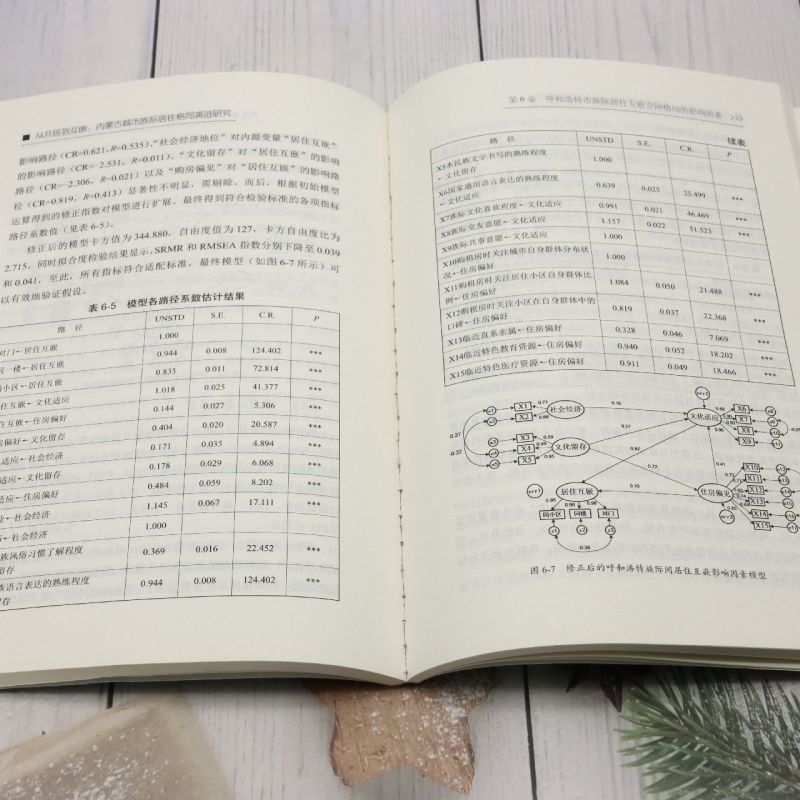 ■ 从共居到互嵌:内蒙古城市族际居住格局演进研究
影响路径(CR=0.621, R=0.535)、“社会经济地位”对内源变量“居住互嵌”
的影响路径(CR=-2.531, R=0.011)、“文化留存”对“居住互嵌”的影响
路径(CR=-2.306, R=0.021)以及“购房偏见”对“居住互嵌”的影响路
径(CR=0.819, R=0.413)显著性不明显,需剔除。而后,根据初始模型
运算得到的修正指数对模型进行扩展,最终得到符合检验标准的各项指标
路径系数值(见表6-5)。
修正后的模型卡方值为344.880,自由度值为127,卡方自由度比为
2.715。同时拟合度检验结果显示,SRMR和RMSEA指数分别下降至0.039
和0.041,至此,所有指标符合适配标准,最终模型(如图6-7所示)可
以有效地验证假设。
表6-5 模型各路径系数估计结果
路 径 UNSTD S.E. C.R. P
对门←居住互嵌 1.000
一楼←居住互嵌 0.944 0.008 124.402 ***
小区←居住互嵌 0.833 0.011 72.814 ***
住互嵌←文化适应 1.018 0.025 41.377 ***
住互嵌←住房偏好 0.144 0.027 5.306 ***
房偏好←文化留存 0.404 0.020 20.587 ***
适应←社会经济 0.171 0.035 4.894 ***
适应←文化留存 0.178 0.029 6.068 ***
适应←住房偏好 0.484 0.059 8.202 ***
←社会经济 1.145 0.067 17.111 ***
←社会经济 1.000
族风俗习惯了解程度
留存 0.369 0.016 22.452 ***
族语言表达的熟练程度
存 0.944 0.008 124.402 ***
第6章 呼和浩特市族际居住互嵌空间格局的影响因素
续表
路 径 UNSTD S.E. C.R. P
X5本民族文字书写的熟练程度
←文化留存 1.000
X6国家通用语言表达的熟练程度
←文化适应 0.639 0.025 25.499 ***
X7族际文化喜欢程度←文化适应 0.991 0.021 46.469 ***
X8族际交友意愿←文化适应 1.157 0.022 51.523 ***
X9族际共事意愿←文化适应 1.000
X10购租房时关注城市自身群体分布状
况←住房偏好 1.000
X11购租房时关注居住小区自身群体比
例←住房偏好 1.084 0.050 21.488 ***
X12购租房时关注小区在自身群体中的
口碑←住房偏好 0.819 0.037 22.368 ***
X13临近直系亲属←住房偏好 0.328 0.046 7.069 ***
X14临近特色教育资源←住房偏好 0.940 0.052 18.202 ***
X15临近特色医疗资源←住房偏好 0.911 0.049 18.466 ***
X1
X2
X3
X4
X5
社会经济
文化留存
文化适应
X6
X7
X8
X9
居住互嵌
同小区 同楼 对门
住房偏见
X10
X11
X12
X13
X14
X15
图6-7 修正后的呼和浩特族际间居住互嵌影响因素模型